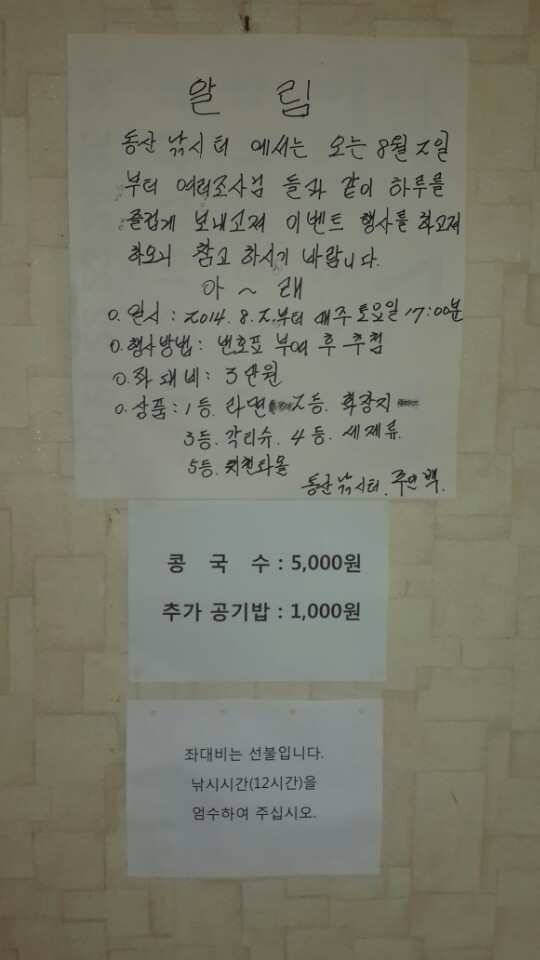 알 림
동산 낚시터 에서는 오는 8월 2일
부터 여러조사님 들과 같이 하루를
즐겁게 보내고져 이벤트 행사를 하고져
하오니 참고 하시기 바랍니다.
아 ~ 래
0. 일시 : 2014. 8. 2. 부터 매주 토요일 17:00분
0. 행사방법 : 번호표 부여 후 추첨
0. 좌대비 : 3만원
0. 상품 : 1등. 라면 2등. 화장지
3등. 각티슈. 4등. 세제류.
5등.
동산 낚시터. 주인 백.
콩 국 수 : 5,000원
추가 공기밥 : 1,000원
좌대비는 선불입니다.
낚시시간(12시간)을
엄수하여 주십시오.